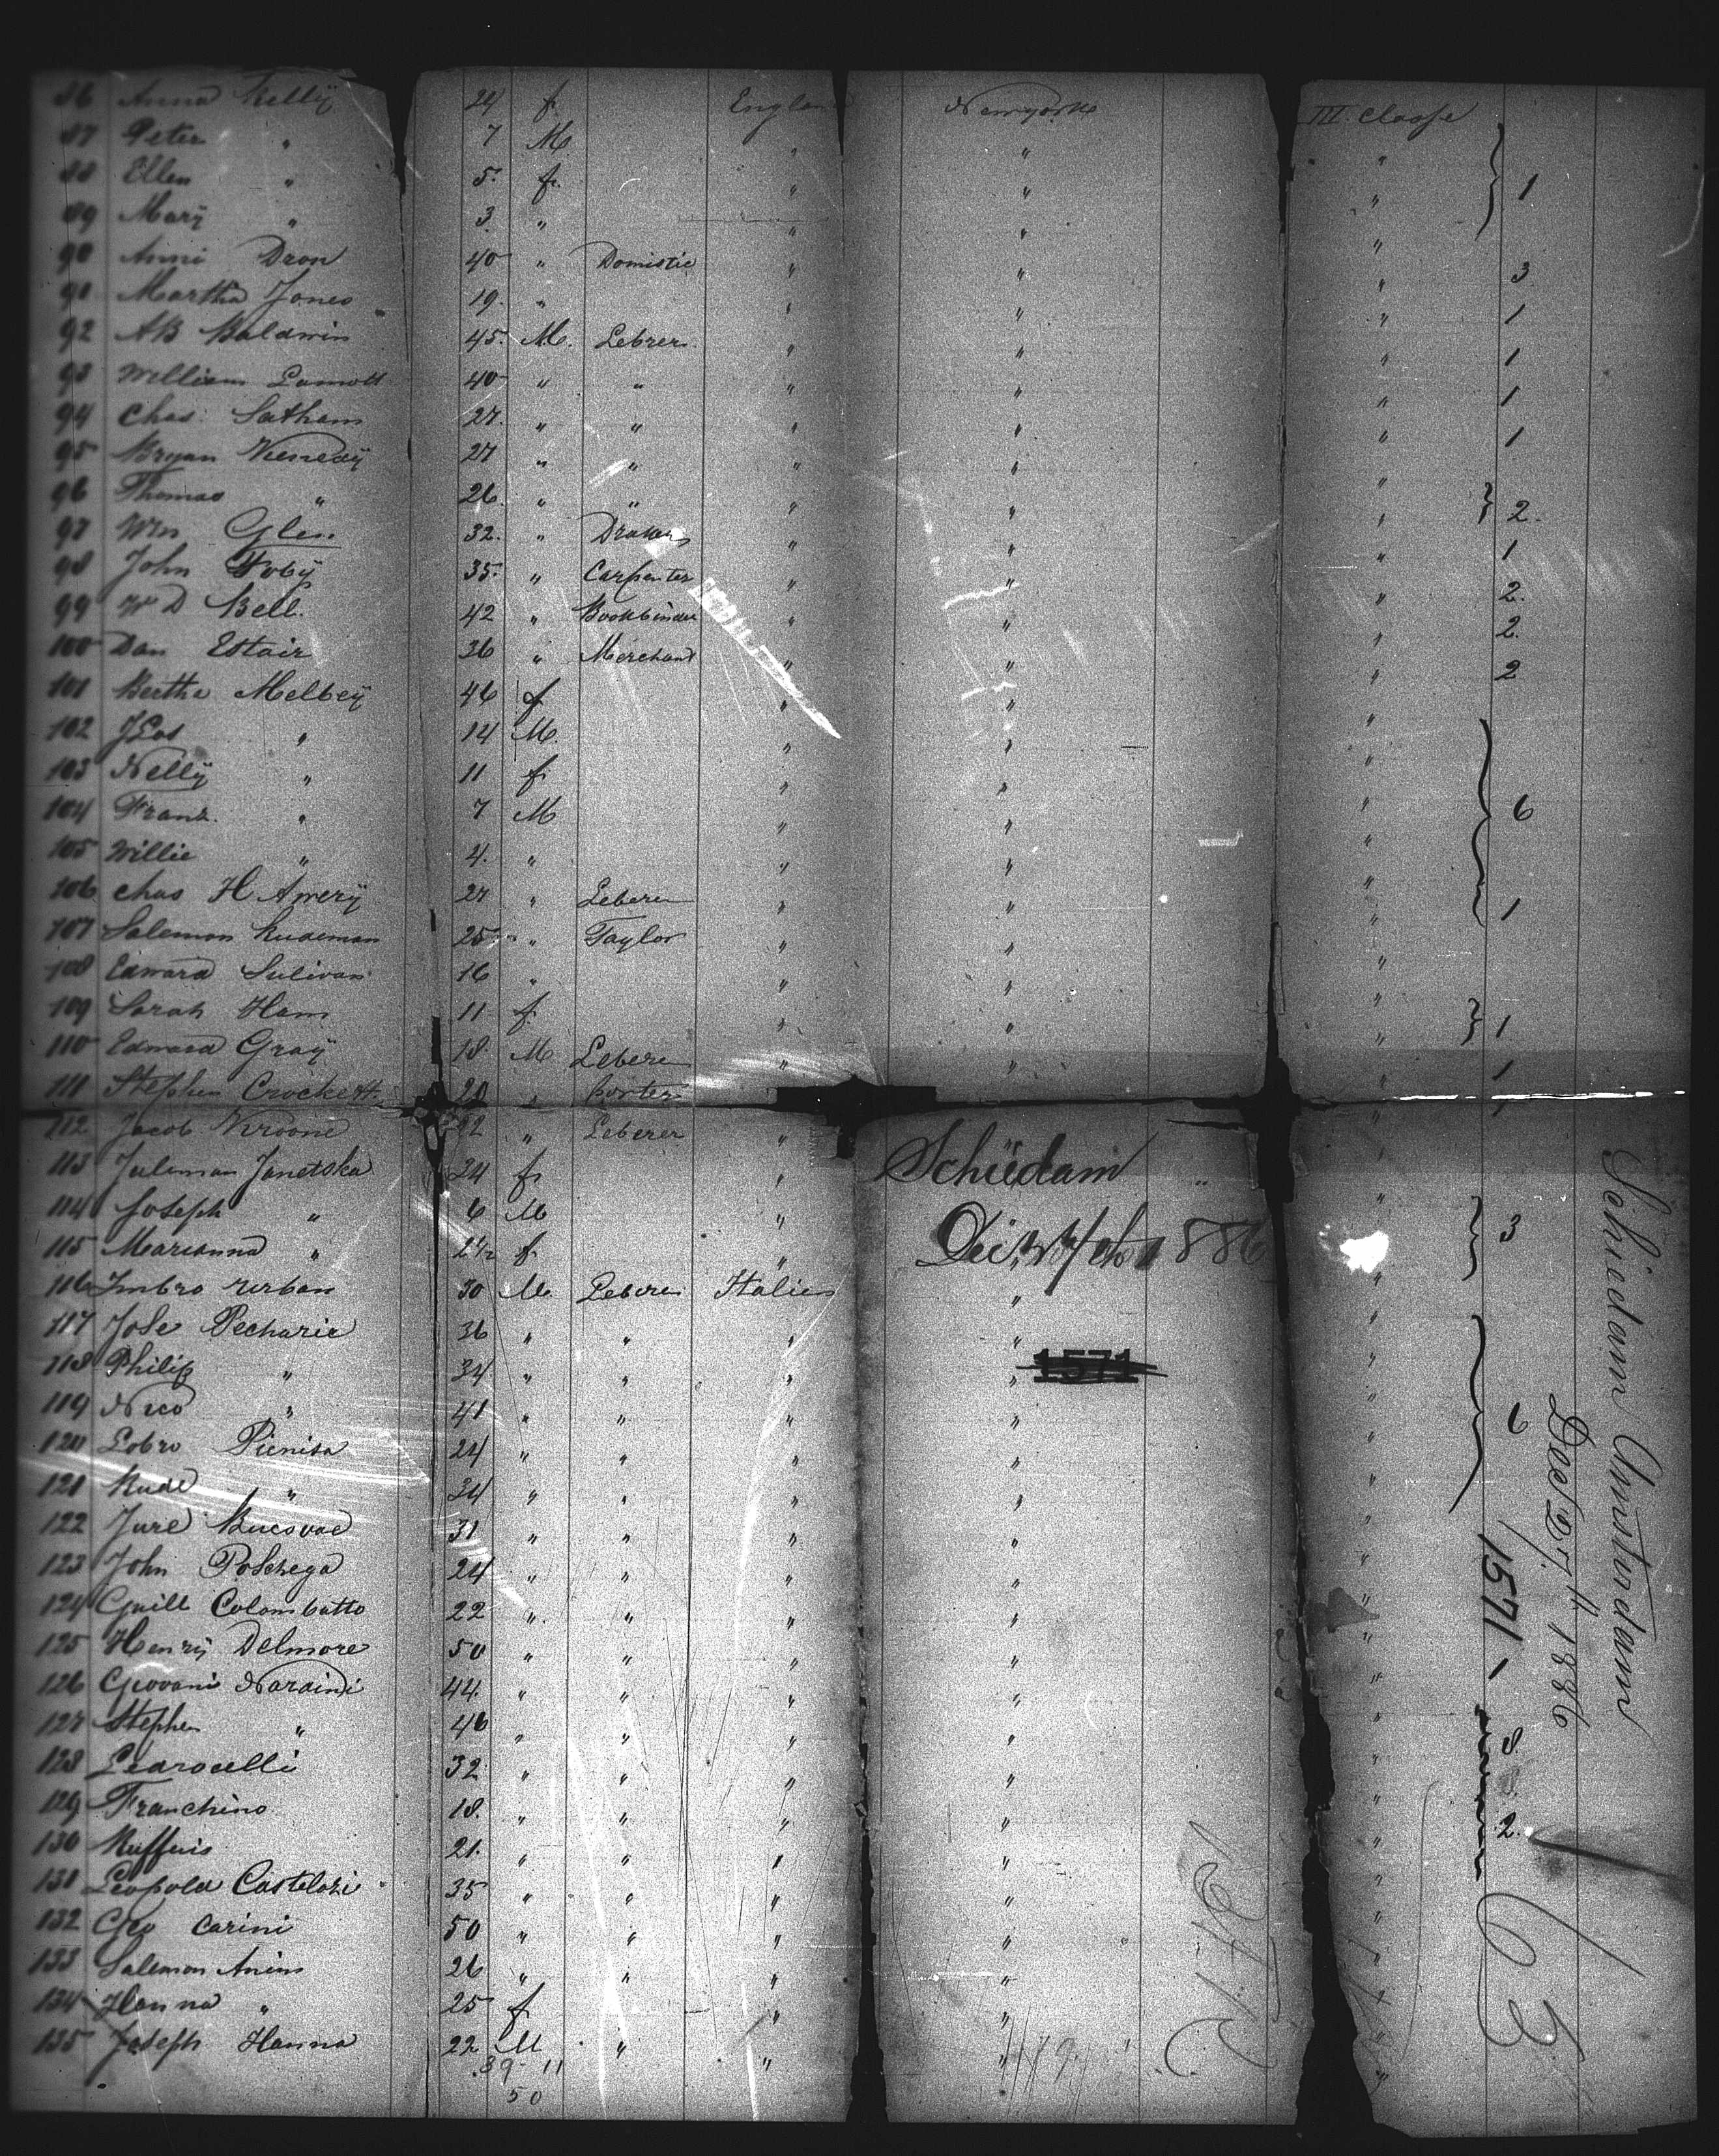 86 Anna Kelly 24 f. England Newyork III Classe
87 Peter " 7 M. " " "
88 Ellen " 5. f. " " " 1
89 Mary " 3. " " " "
90 Anni Dron 40 " Domistic " " " 3
91 Martha Jones 19. " " " " 1
92 AB Baldwin 45. M. Lebrer " " " 1
93 William Lamott 40 " " " " " 1
94 Chas. Sathem 27. " " " " " 1
95 Bryan Kenedy 27 " " " " "
96 Thomas " 26. " " " " " 2.
97 Wm Glen 32. " " " " 1
98 John Foby 35. " Carpenter " " " 2.
99 W D Bell. 42 " Bookbinder " " " 2.
100 Dan Estair 36 " Merchant " " " 2
101 Bertha Melbey 46 f " " "
102 " 14 M. " " "
103 Nelly " 11 f. " " "
104 Frank. " 7 M " " " 6
105 Willie " 4. " " " "
106 Chas H Amery 27 " Leberer " " " 1
107 Salemon Rudeman 25 " Taylor " " "
108 Edward Sulivan 16 " " " "
109 Sarah Ham 11 f. " " " 1
110 Edward Gray 18. M Leberer " " " 1
111 Stephen Crockett. 20 " Porter 1
112 Jacob Kroone 22 " Leberer " "
Schiedam
113 Juleman Janetska 24 f. " "
114 Joseph " 6 M " " 3
115 Marianna " 2 1/2 f. " "
1886
116 Imbro Urban 30 M. Leberer Italien " "
117 Jose Pecharic 36 " " " " "
118 Philip " 34 " " " " "
1571
119 Nico " 41 " " " " " 6
120 Lobro Pienisa 24 " " " " "
121 Rude " 34 " " " " "
122 Jure Bucovac 31 " " " " "
123 John Poschega 24 " " " " "
124 Guill Colombatto 22 " " " " "
125 Henry Delmore 50 " " " " "
126 Giovani Nardini 44. " " " " " 1
127 Stephen " 46 " " " " "
128 Pedrocelli 32 " " " " " 8.
129 Franchino 18. " " " " "
130 Ruffinis 21. " " " " " 2.
131 Leopold Casteloni 35 " " " " "
132 Geo Carini 50 " " " " "
133 Salemon Anins 26 " " " " "
134 Hanna " 25 f. " " "
135 Joseph Hanna 22 M " " " "
39 - 11
50
Schiedam Amsterdam
Dec 27th 1886
1571
63